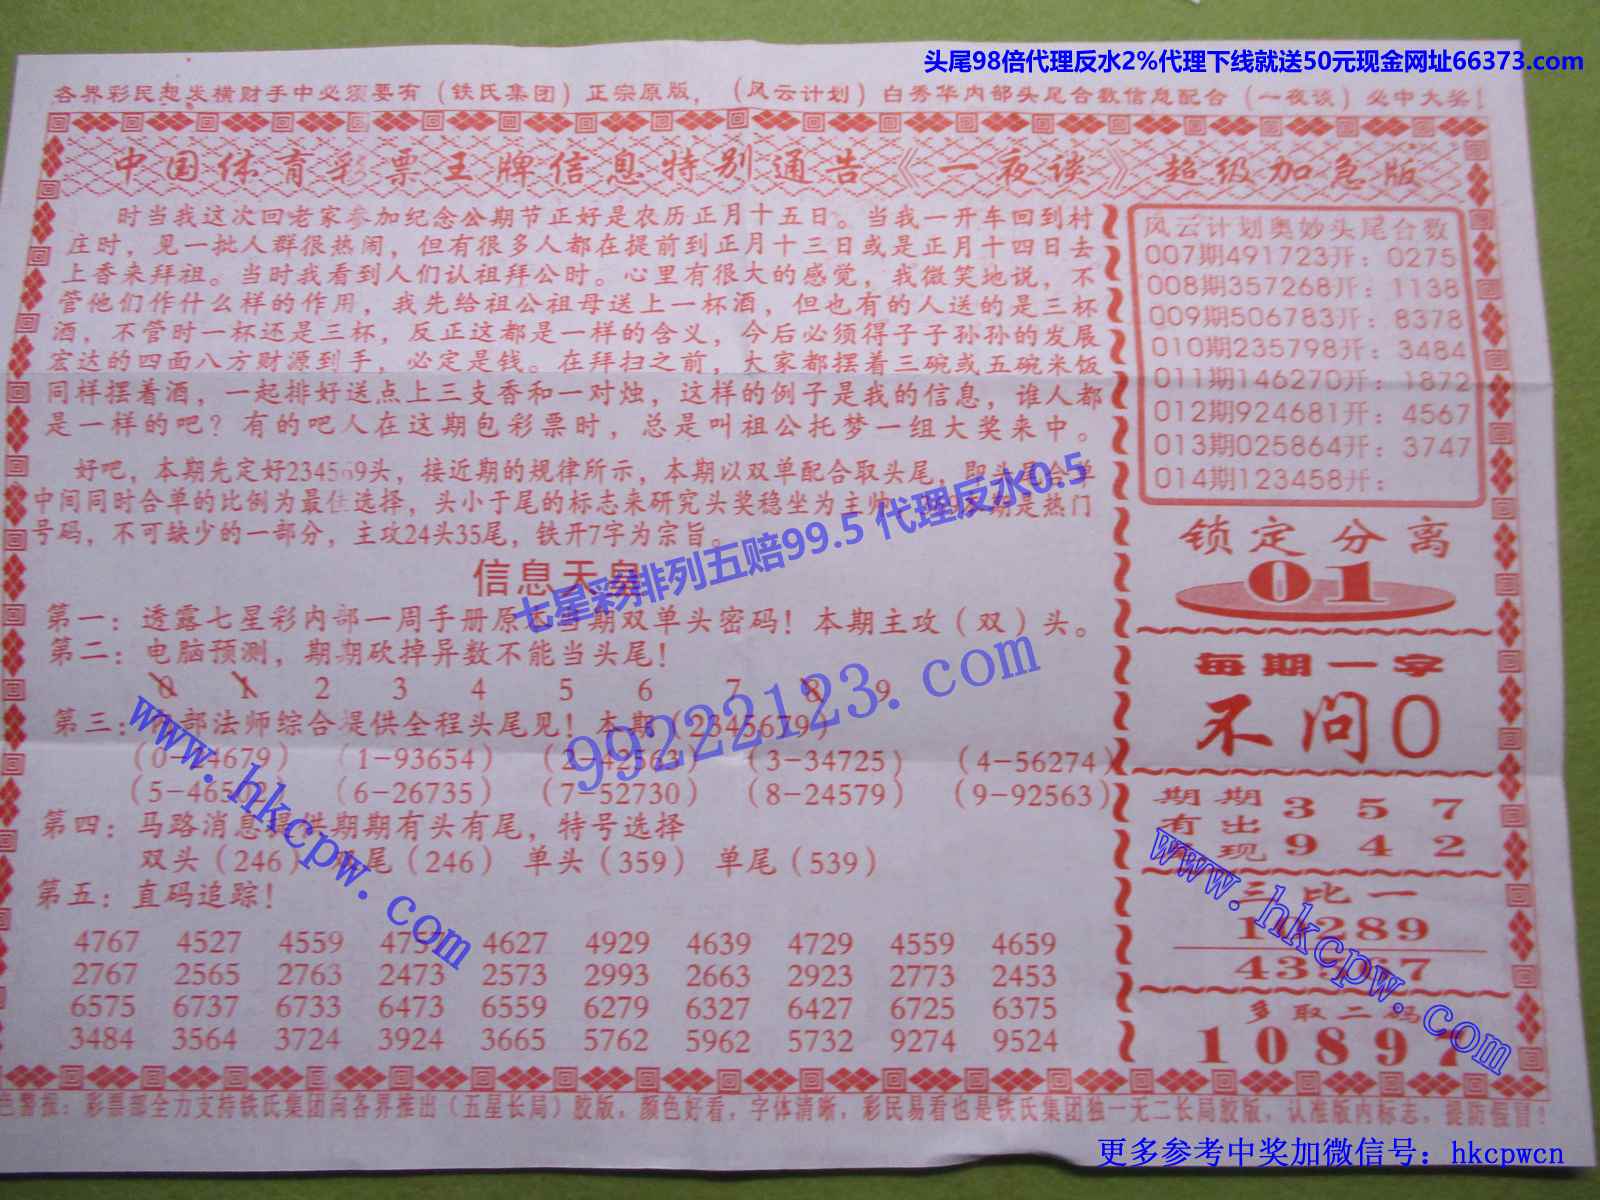 头尾98倍代理反水2%代理下线就送50元现金网址66373.com
各界彩民想发横财手中必须要有（铁氏集团）正宗原版，（风云计划）白秀华内部头尾合数信息配合（一夜谈）必中大奖！
中国体育彩票王牌信息特别通告《一夜谈》超级加急版
时当我这次回老家参加纪念公期节正好是农历正月十五日。当我一开车回到村
庄时，见一批人群很热闹，但有很多人都在提前到正月十三日或是正月十四日去
上香来拜祖。当时我看到人们认祖拜公时。心里有很大的感觉，我微笑地说，不
管他们作什么样的作用，我先给祖公祖母送上一杯酒，但也有的人送的是三杯
酒，不管时一杯还是三杯，反正这都是一样的含义，今后必须得子子孙孙的发展
宏达的四面八方财源到手，必定是钱。在拜扫之前，大家都摆着三碗或五碗米饭
同样摆着酒，一起排好送点上三支香和一对烛，这样的例子是我的信息，谁人都
是一样的吧？有的吧人在这期包彩票时，总是叫祖公托梦一组大奖来中。
好吧，本期先定好234569头，接近期的规律所示，本期以双单配合取头尾，即头尾合单
中间同时合单的比例为最佳选择，头小于尾的标志来研究头奖稳坐为主帅，期是热门
号码，不可缺少的一部分，主攻24头35尾，铁开7字为宗旨。
七星彩排列五赔99.5 代理反水0.5
信息天
第一：透露七星彩内部一周手册原期双单头密码！本期主攻（双）头。
第二：电脑预测，期期砍掉异数不能当头尾！
0 1 2 3 4 5 6 7 8 9
99222123.com
第三：部法师综合提供全程头尾见！本期（2345679）
4679） （1-93654） （2-42563） （3-34725） （4-56274）
（5-46 （6-26735） （7-52730） （8-24579） （9-92563）
www.hkcpw.com
第四：马路消息提供期期有头有尾，特号选择
双头（246） 尾（246） 单头（359） 单尾（539）
第五：直码追踪！
4767 4527 4559 4627 4929 4639 4729 4559 4659
2767 2565 2763 2473 2573 2993 2663 2923 2773 2453
6575 6737 6733 6473 6559 6279 6327 6427 6725 6375
3484 3564 3724 3924 3665 5762 5962 5732 9274 9524
风云计划奥妙头尾合数
007期491723开：0275
008期357268开：1138
009期506783开：8378
010期235798开：3484
011期146270开：1872
012期924681开：4567
013期025864开：3747
014期123458开：
锁定分离
01
每期一字
不问0
期期 3 5 7
有出
现 9 4 2
www.hkcpw.com
三比一
289
43 7
多取二码
10897
色警报：彩票部全力支持铁氏集团向各界推出（五星长局）胶版，颜色好看，字体清晰，彩民易看也是铁氏集团独一无二长局胶版，认准版内标志，提防假冒！
更多参考中奖加微信号：hkcpwcn